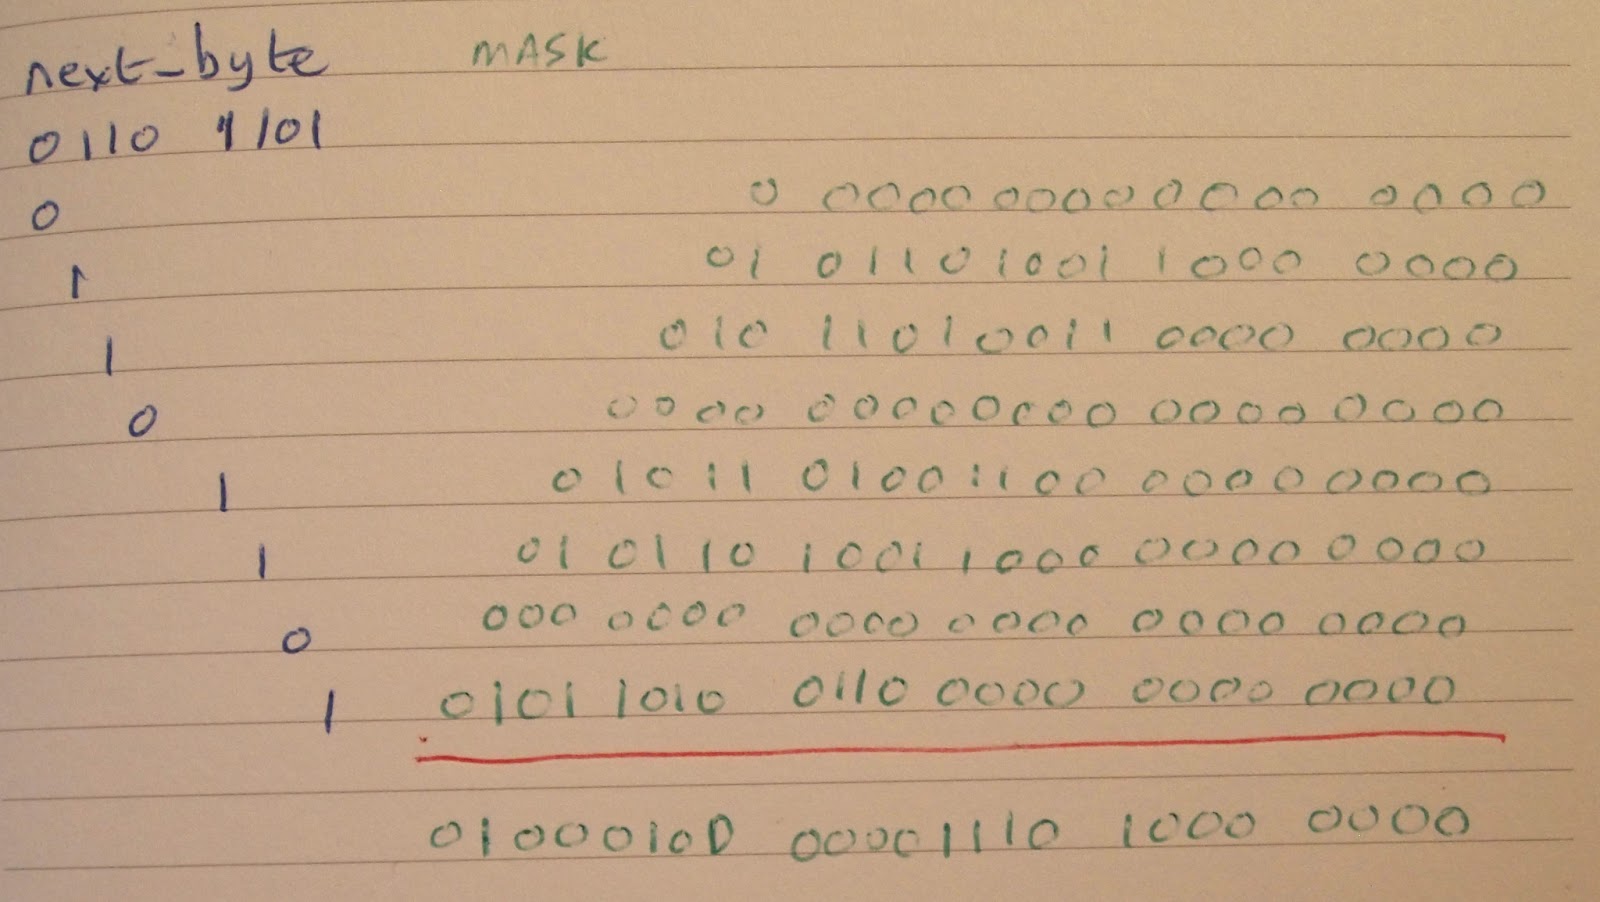 next_byte MASK
0110 1101
0 0 0000 0000 0000 0000
1 01 01101001 1000 0000
1 010 11010011 0000 0000
0 0000 00000000 0000 0000
1 01011 01001100 0000 0000
1 010110 10011000 0000 0000
0 000 0000 0000 0000 0000 0000
1 0101 1010 0110 0000 0000 0000
01000100 00001110 1000 0000